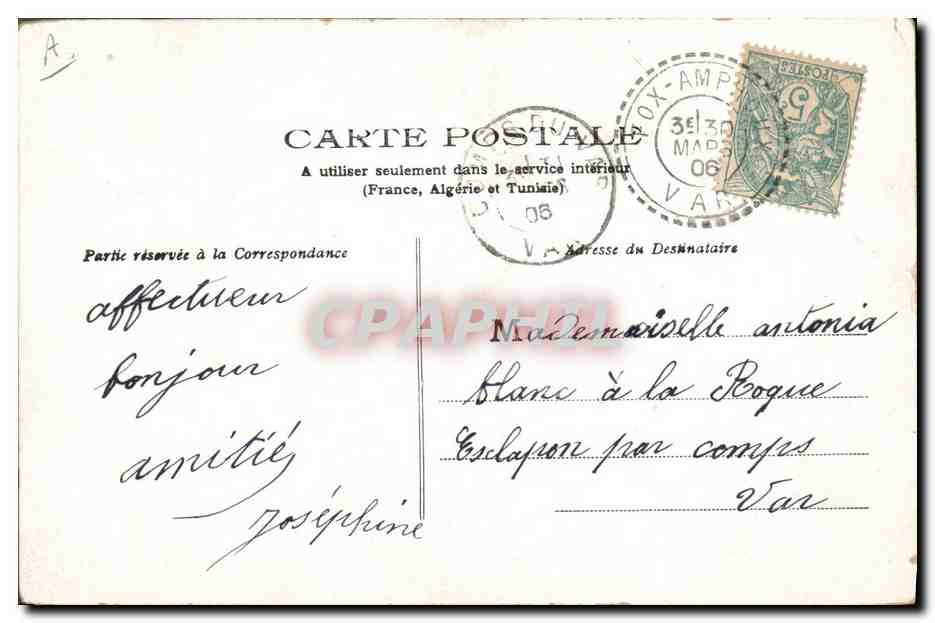 A
CARTE POSTALE
A utiliser seulement dans le service intérieur
(France, Algérie et Tunisie)
FOX-AMPHOUX
3E 30
MARS
06
VAR
COMPS DU VAR
06
VAR
POSTES
5
Partie réservée à la Correspondance
Adresse du Destinataire
affectueux
bonjour
amitiés
Joséphine
Mademoiselle antonia
blanc à la Roque
Esclapon par comps
Var
CPAPHIL